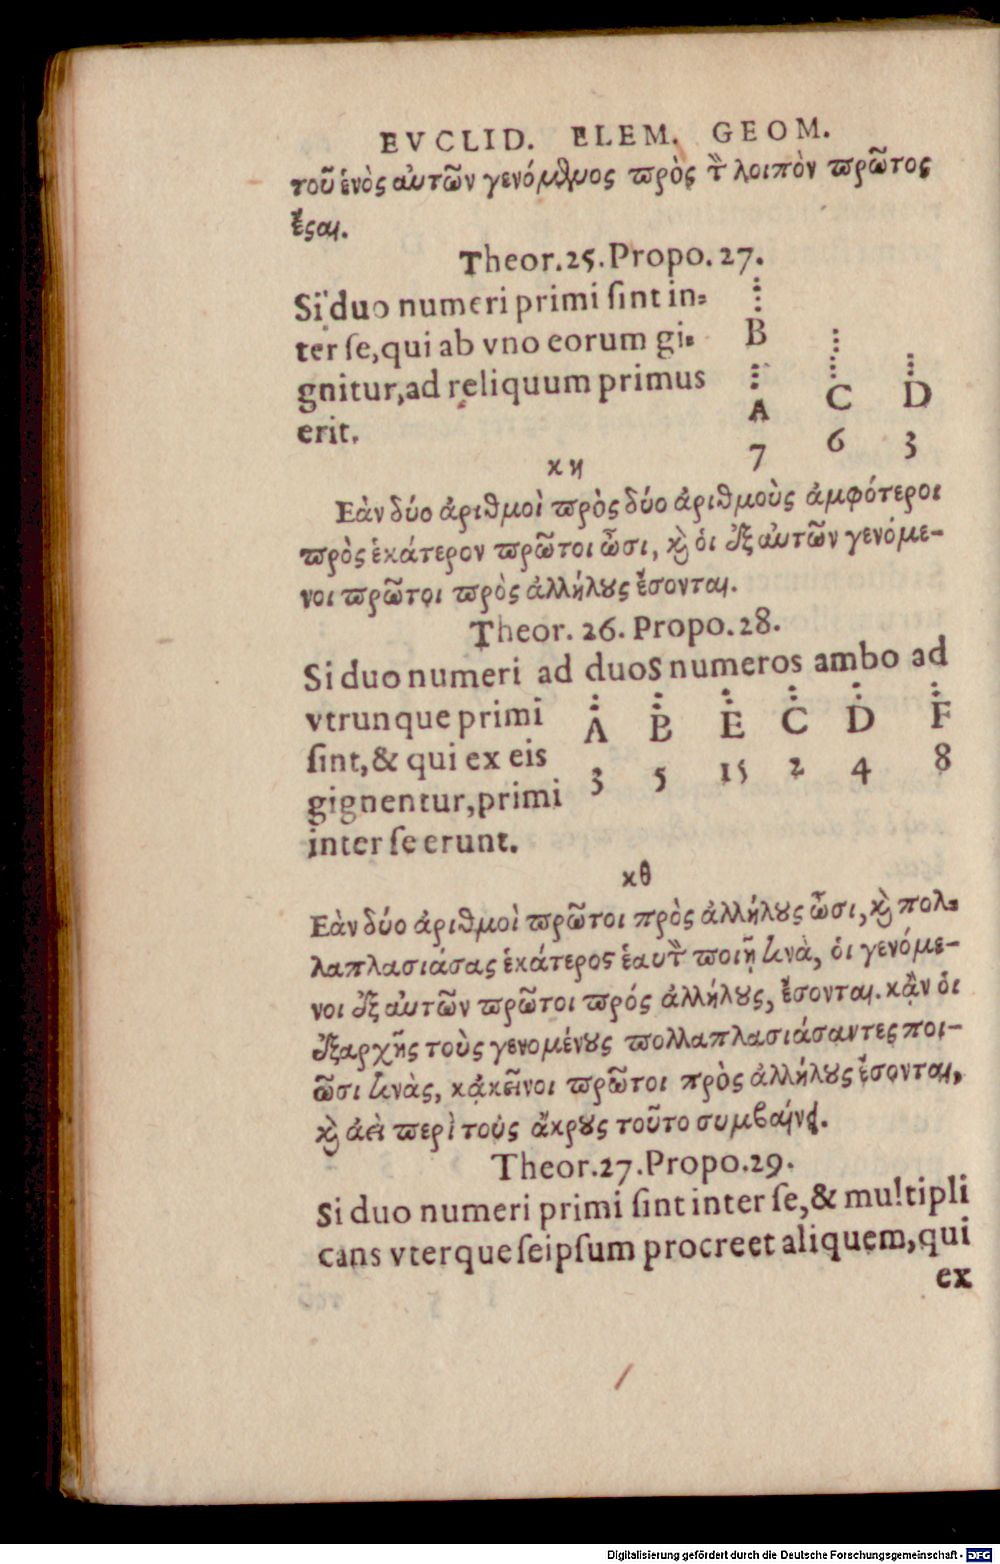 EVCLID. ELEM. GEOM.
τοῦ ἑνὸς αὐτῶν γενόμενος πρὸς τὸν λοιπὸν πρῶτος
ἔσαι.
Theor.25.Propo.27.
Si duo numeri primi sint in-
ter se,qui ab vno eorum gi-
gnitur,ad reliquum primus
erit.
B
A C D
7 6 3
κη
Ἐὰν δύο ἀριθμοὶ πρὸς δύο ἀριθμοὺς ἀμφότεροι
πρὸς ἑκάτερον πρῶτοι ὦσι, καὶ οἱ ἐξ αὐτῶν γενόμε-
νοι πρῶτοι πρὸς ἀλλήλους ἔσονται.
Theor. 26. Propo.28.
Si duo numeri ad duos numeros ambo ad
vtrunque primi
sint,& qui ex eis
gignentur,primi
inter se erunt.
A B E C D F
3 5 15 2 4 8
κθ
Ἐὰν δύο ἀριθμοὶ πρῶτοι πρὸς ἀλλήλους ὦσι, καὶ πολ-
λαπλασιάσας ἑκάτερος ἑαυτὸν ποιῇ τινὰ, οἱ γενόμε-
νοι ἐξ αὐτῶν πρῶτοι πρός ἀλλήλους, ἔσονται. κἂν οἱ
ἐξαρχῆς τοὺς γενομένους πολλαπλασιάσαντες ποι-
ῶσι τινὰς, κἀκεῖνοι πρῶτοι πρὸς ἀλλήλους ἔσονται,
καὶ ἀεὶ περὶ τοὺς ἄκρους τοῦτο συμβαίνει.
Theor.27.Propo.29.
Si duo numeri primi sint inter se,& multipli
cans vterque seipsum procreet aliquem,qui
ex
Digitalisierung gefördert durch die Deutsche Forschungsgemeinschaft - DFG